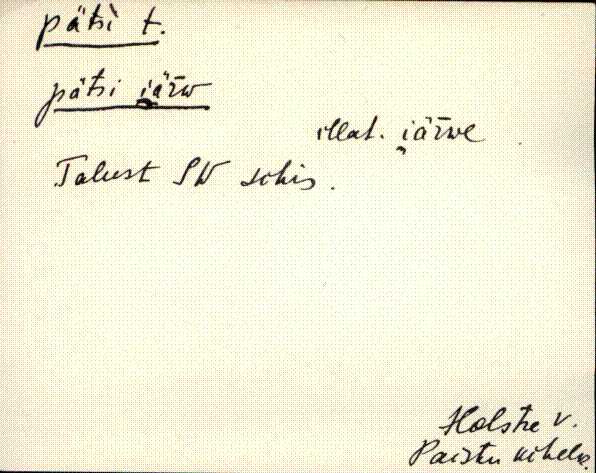 pätsi t.
pätsi i̯ärw
illat. i̯ärwe
Talust SW sohis.
Holstre v.
Paistu kihelk.